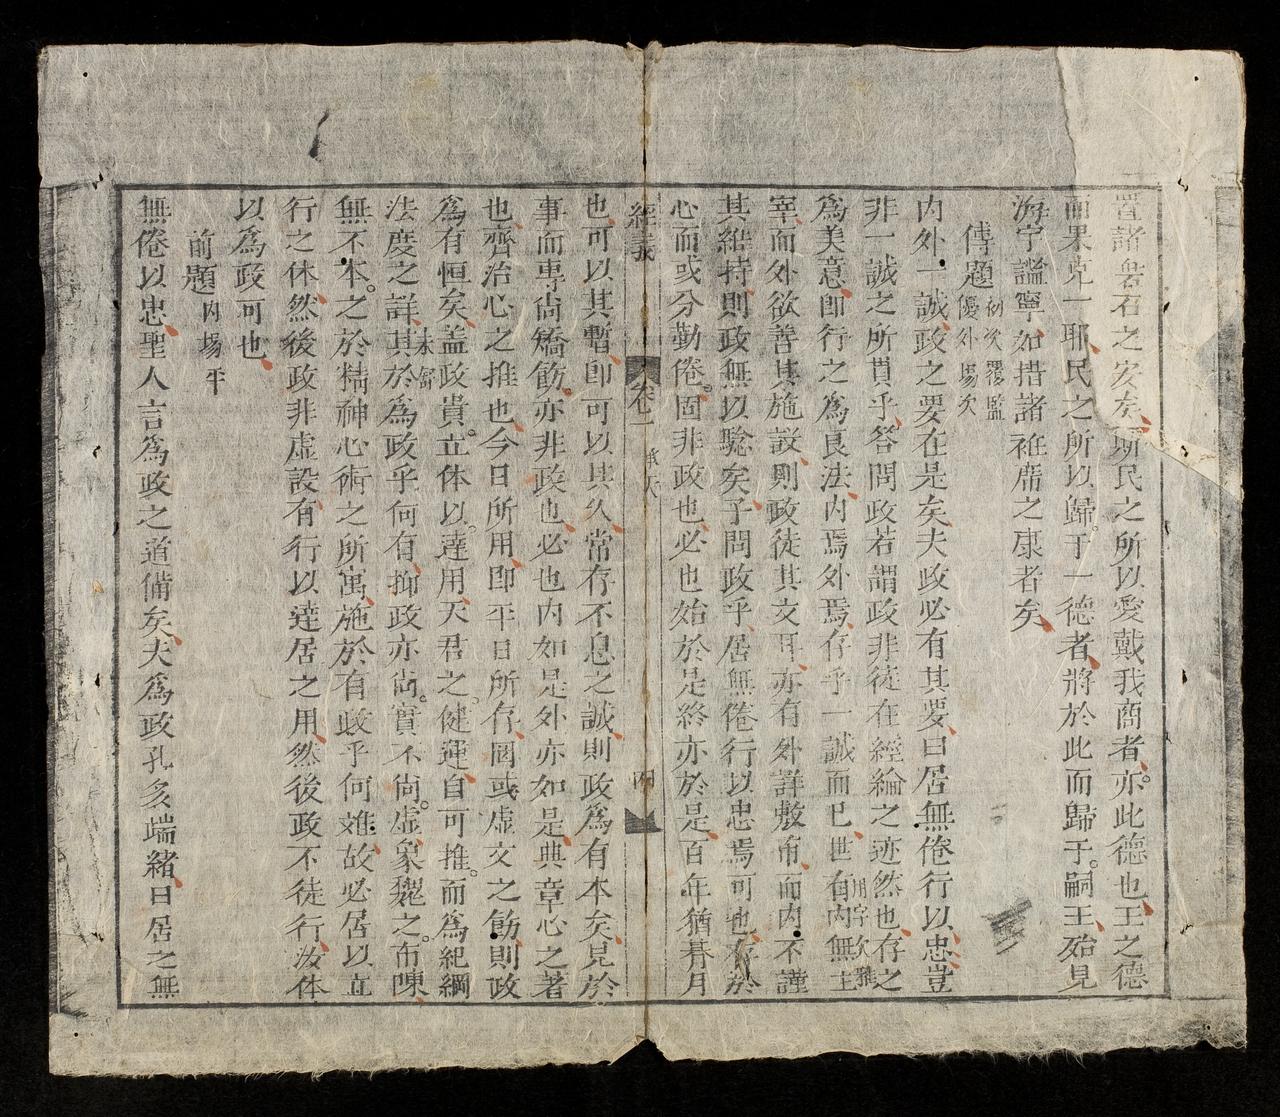 置諸磐石之安矣斯民之所以愛戴我商者亦此德也王之德
而果克一耶民之所以歸于一德者將於此而歸于嗣王殆見
海宇謐寧如措諸袵席之康者矣
傳題
初次覆監
優外場次
內外一誠政之要在是矣夫政必有其要曰居無倦行以忠豈
非一誠之所貫乎答問政若謂政非徒在經綸之迹然也存之
用字欠雅
爲美意即行之爲良法內焉外焉存乎一誠而已世有內無主
宰而外欲善其施設則政徒其文耳亦有外詳敷布而內不謹
其維持則政無以驗矣子問政乎居無倦行以忠焉可也存於
心而或分勤倦固非政也必也始於是終亦於是百年猶朞月
經義
卷一
四
也可以其暫即可以其久常存不息之誠則政爲有本矣見於
事而專尚矯飾亦非政也必也內如是外亦如是典章心之著
也齊治心之推也今日所用即平日所存固或虛文之飭則政
爲有恒矣蓋政貴立体以達用天君之健運自可推而爲紀綱
法度之詳其於爲政乎何有抑政亦尚實不尚虛象魏之布陳
無不本之於精神心術之所寓施於有政乎何难故必居以立
行之休然後政非虛設有行以達居之用然後政不徒行汝休
以爲政可也
前題內場平
無倦以忠聖人言爲政之道備矣夫爲政孔多端緒曰居之無